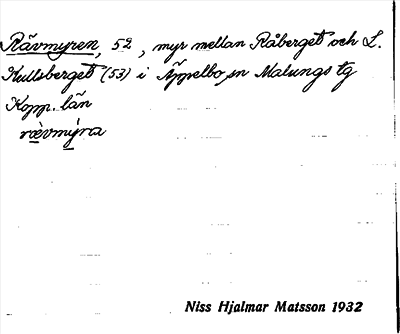 Rävmyren, 52, myr mellan Råberget och L.
Kullsberget (53) i Äppelbo sn Malungs tg
Kopp. län
rævmy̌ra
Niss Hjalmar Matsson 1932